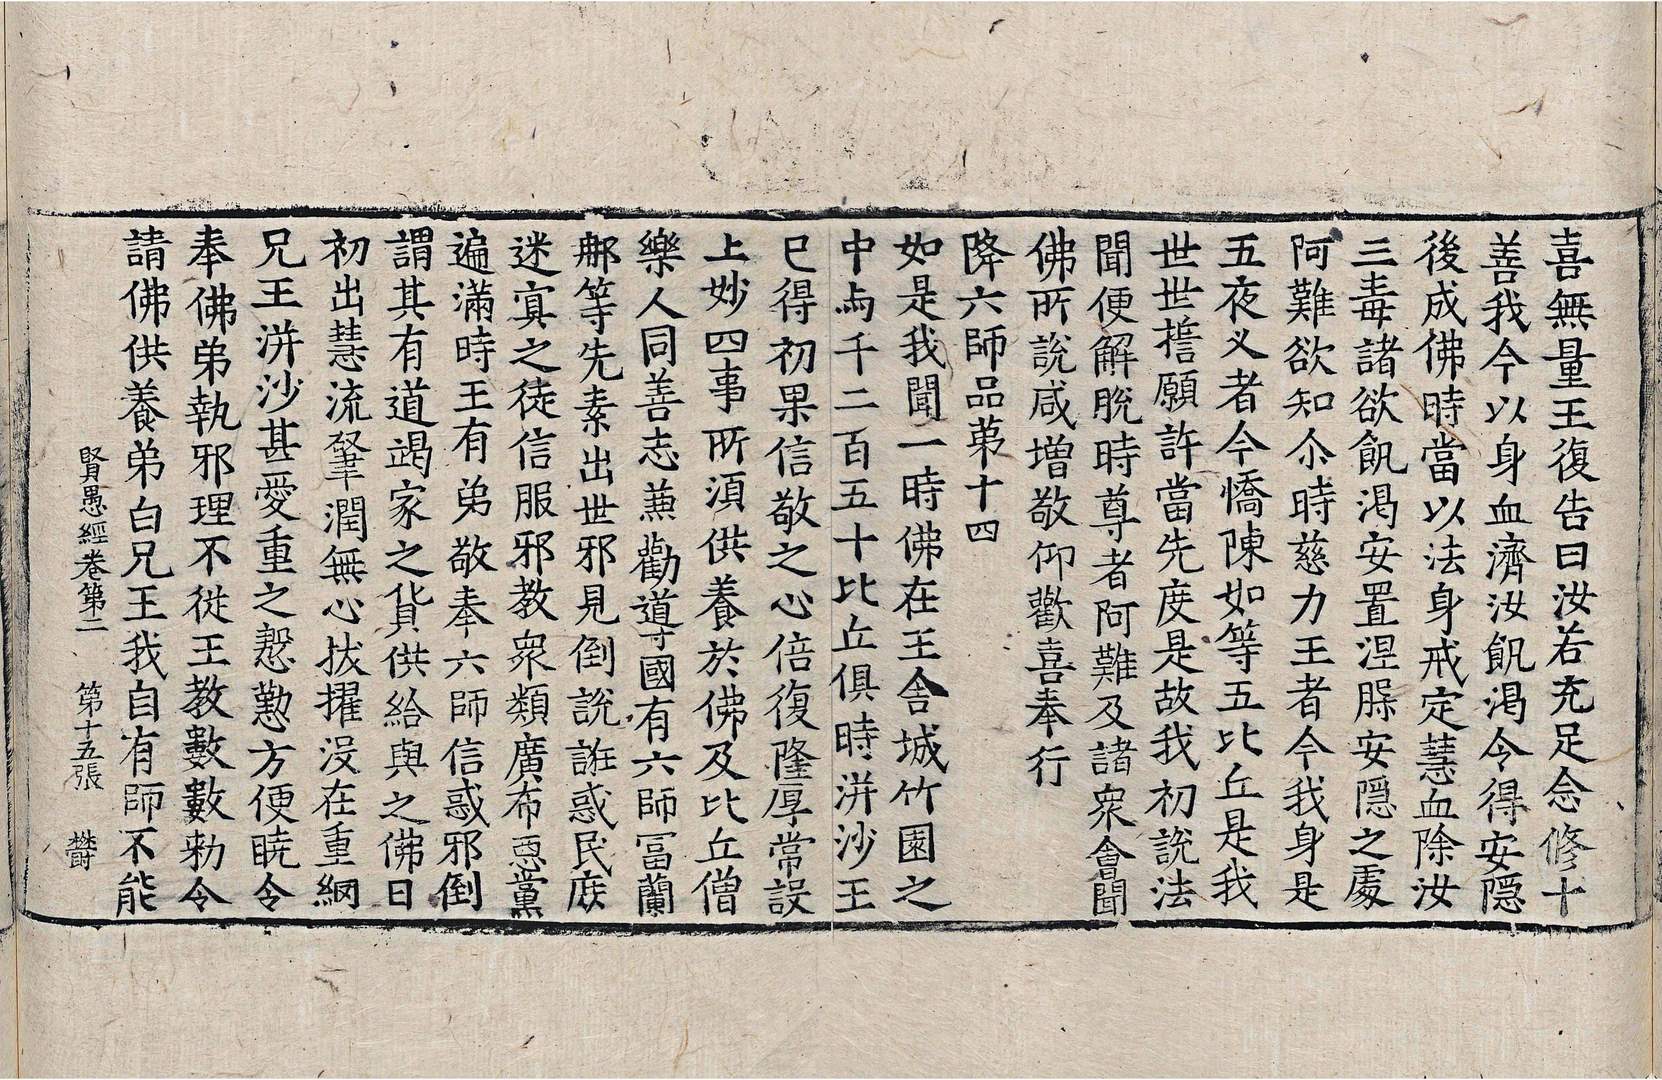 喜無量王復告曰汝若充足念修十
善我今以身血濟汝飢渴令得安隠
後成佛時當以法身戒定慧血除汝
三毒諸欲飢渴安置涅槃安隠之處
阿難欲知尒時慈力王者今我身是
五夜叉者今憍陳如等五比丘是我
世世誓願許當先度是故我初說法
聞便解脫時尊者阿難及諸衆會聞
佛所說咸增敬仰歡喜奉行
降六師品第十四
如是我聞一時佛在王舎城竹園之
中与千二百五十比丘俱時洴沙王
已得初果信敬之心倍復隆厚常設
上妙四事所湏供養於佛及比丘僧
樂人同善志兼勸導國有六師冨蘭
那等先素出世邪見倒說誑惑民庶
迷冥之徒信服邪教衆類廣布惡黨
遍滿時王有弟敬奉六師信惑邪倒
謂其有道竭家之貨供給與之佛日
初出慧流肇潤無心拔擢沒在重網
兄王洴沙甚愛重之慇懃方便曉令
奉佛弟執邪理不從王教數數勑令
請佛供養弟白兄王我自有師不能
賢愚經卷第二 第十五張 欝